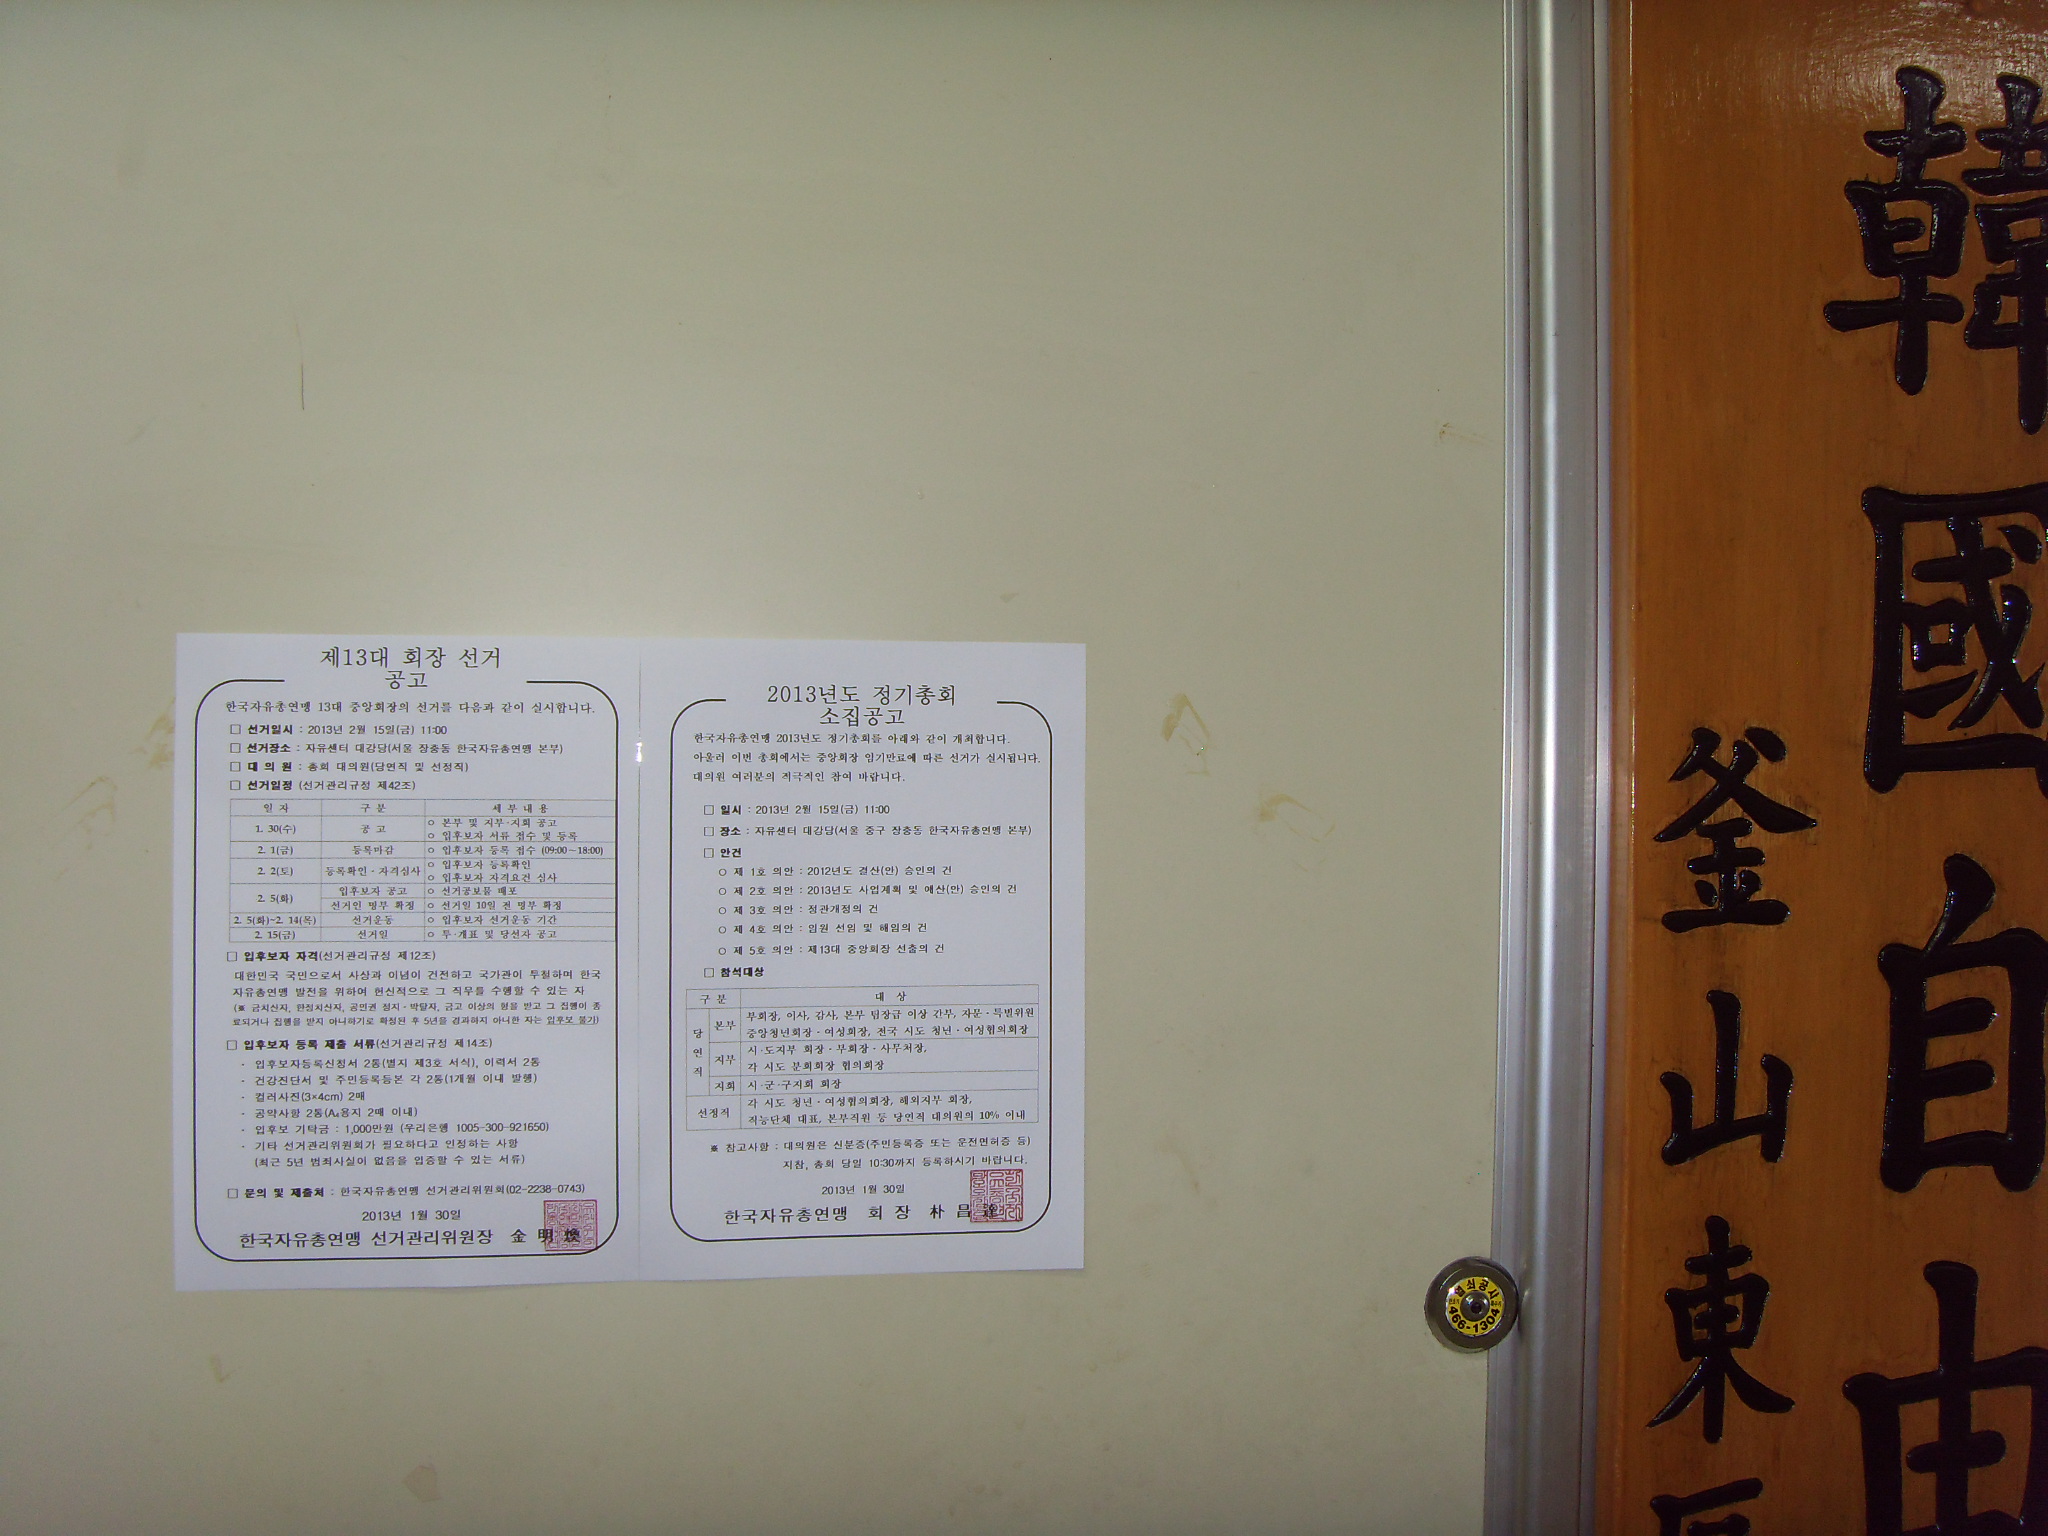 제13대 회장 선거
공고
한국자유총연맹 13대 중앙회장의 선거를 다음과 같이 실시합니다.
□ 선거일시 : 2013년 2월 15일(금) 11:00
□ 선거장소 : 자유센터 대강당(서울 장충동 한국자유총연맹 본부)
□ 대 의 원 : 총회 대의원(당연직 및 선정직)
□ 선거일정 (선거관리규정 제42조)
일 자 구 분 세 부 내 용
1. 30(수) 공 고 ○ 본부 및 지부·지회 공고
○ 입후보자 서류 접수 및 등록
2. 1(금) 등록마감 ○ 입후보자 등록 접수 (09:00~18:00)
2. 2(토) 등록확인·자격심사 ○ 입후보자 등록확인
○ 입후보자 자격요건 심사
2. 5(화) 입후보자 공고 ○ 선거공보물 배포
선거인 명부 확정 ○ 선거일 10일 전 명부 확정
2. 5(화)~2. 14(목) 선거운동 ○ 입후보자 선거운동 기간
2. 15(금) 선거일 ○ 투·개표 및 당선자 공고
□ 입후보자 자격(선거관리규정 제12조)
대한민국 국민으로서 사상과 이념이 건전하고 국가관이 투철하며 한국
자유총연맹 발전을 위하여 헌신적으로 그 직무를 수행할 수 있는 자
(※ 금치산자, 한정치산자, 공민권 정지·박탈자, 금고 이상의 형을 받고 그 집행이 종
료되거나 집행를 받지 아니하기로 확정된 후 5년을 경과하지 아니한 자는 입후보 불가)
□ 입후보자 등록 제출 서류(선거관리규정 제14조)
- 입후보자등록신청서 2통(별지 제3호 서식), 이력서 2통
- 건강진단서 및 주민등록등본 각 2통(1개월 이내 발행)
- 컬러사진(3×4cm) 2매
- 공약사항 2통(A₄용지 2매 이내)
- 입후보 기탁금 : 1,000만원 (우리은행 1005-300-921650)
- 기타 선거관리위원회가 필요하다고 인정하는 사항
(최근 5년 범죄사실이 없음을 입증할 수 있는 서류)
□ 문의 및 제출처 : 한국자유총연맹 선거관리위원회(02-2238-0743)
2013년 1월 30일
한국자유총연맹 선거관리위원장 金 明 煥
2013년도 정기총회
소집공고
한국자유총연맹 2013년도 정기총회를 아래와 같이 개최합니다.
아울러 이번 총회에서는 중앙회장 임기만료에 따른 선거가 실시됩니다.
대의원 여러분의 적극적인 참여 바랍니다.
□ 일시 : 2013년 2월 15일(금) 11:00
□ 장소 : 자유센터 대강당(서울 중구 장충동 한국자유총연맹 본부)
□ 안건
○ 제 1호 의안 : 2012년도 결산(안) 승인의 건
○ 제 2호 의안 : 2013년도 사업계획 및 예산(안) 승인의 건
○ 제 3호 의안 : 정관개정의 건
○ 제 4호 의안 : 임원 선임 및 해임의 건
○ 제 5호 의안 : 제13대 중앙회장 선출의 건
□ 참석대상
구 분 대 상
당연직 본부 부회장, 이사, 감사, 본부 팀장급 이상 간부, 자문·특별위원
중앙청년회장·여성회장, 전국 시도 청년·여성협의회장
지부 시·도지부 회장·부회장·사무처장,
각 시도 분회회장 협의회장
지회 시·군·구지회 회장
선정직 각 시도 청년·여성협의회장, 해외지부 회장,
직능단체 대표, 본부직원 등 당연직 대의원의 10% 이내
※ 참고사항 : 대의원은 신분증(주민등록증 또는 운전면허증 등)
지참, 총회 당일 10:30까지 등록하시기 바랍니다.
2013년 1월 30일
한국자유총연맹 회 장 朴 昌 達
466-1304
韓國自由
釜山東